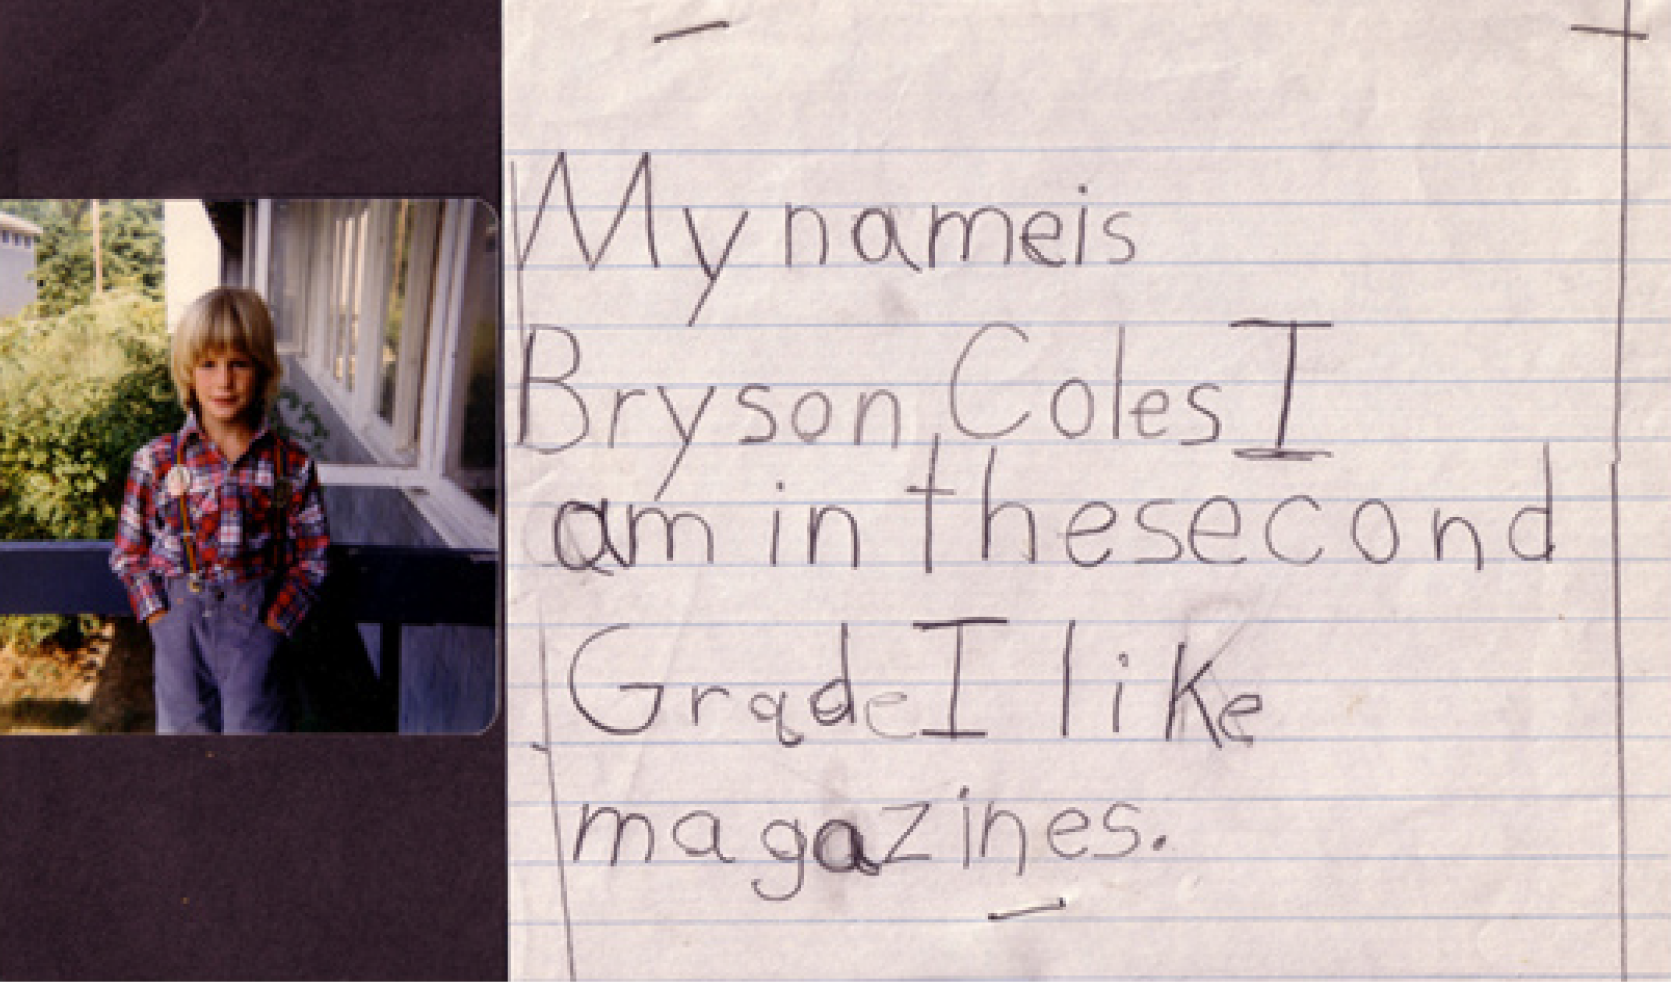 My name is
Bryson Coles I
am in the second
Grade I like
magazines.